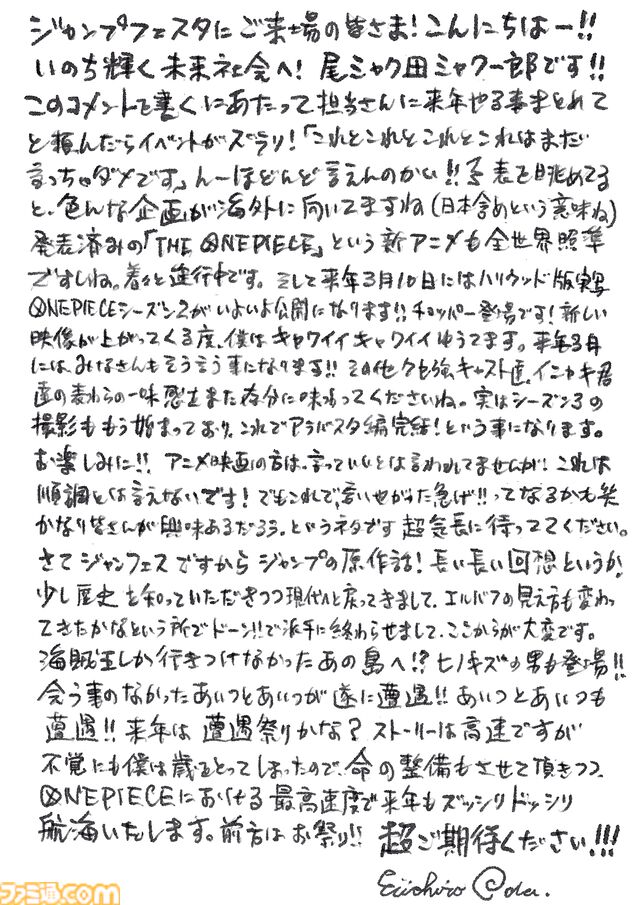 ジャンプフェスタにご来場の皆さま！こんにちはー!!
いのち輝く未来社会へ！尾ミャク田ミャク一郎です!!
このコメントを書くにあたって担当さんに来年やる事まとめて
と頼んだらイベントがズラリ！「これとこれとこれとこれはまだ
言っちゃダメです」んーほどんど言えんのかい!!予表を眺めてる
と、色んな企画が海外に向いてますね（日本含めという意味ね）
発表済みの「THE ONE PIECE」という新アニメも全世界照準
ですしね。着々と進行中です。そして来年3月10日にはハリウッド版実写
ONE PIECEシーズン2がいよいよ公開になります!!チョッパー登場です！新しい
映像が上がってくる度、僕はキャワイイキャワイイゆうてます。来年3月
には、みなさんもそう言う事になります!!その他クセ強キャスト達、イニャキ君
達の麦わらの一味感もまた存分に味わってくださいね。実はシーズン3の
撮影ももう始まっており、これでアラバスタ編完結！という事になります。
お楽しみに!!アニメ映画の方は、言っていいとは言われてませんが！これは
順調とは言えないです！でもこれで、言いやがった急げ!!ってなるかも笑
かなり皆さんが興味あるだろう、というネタです超気長に待っててください。
さてジャンフェスですからジャンプの原作話！長い長い回想というか！
少し歴史を知っていただきつつ現代へと戻ってきまして、エルバフの見え方も変わっ
てきたかなという所でドーン!!で派手に終わらせまして、ここからが大変です。
海賊王しか行きつけなかったあの島へ!?ヒノキズの男も登場!!
会う事のなかったあいつとあいつが遂に遭遇!!あいつとあいつも
遭遇!!来年は遭遇祭りかな？ストーリーは高速ですが
不覚にも僕は歳をとってしまったので、命の整備もさせて頂きつつ
ONE PIECEにおける最高速度で来年もズッシリドッシリ
航海いたします。前方はお祭り!!超ご期待ください!!!
Eiichiro Oda.
ファミ通.com